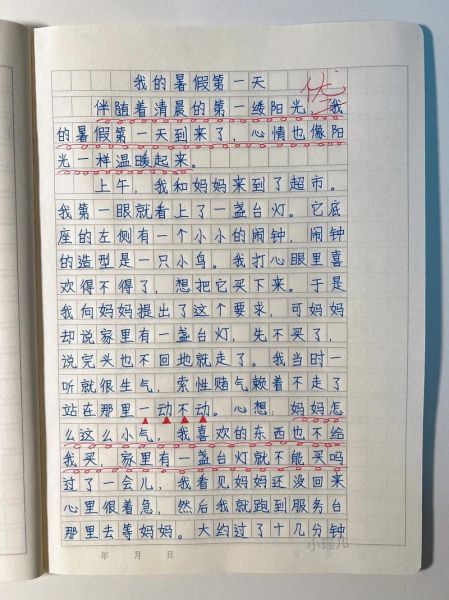 我的暑假第一天
优
伴随着清晨的第一缕阳光，我
的暑假第一天到来了，心情也像阳
光一样温暖起来。
上午，我和妈妈来到了超市。
我第一眼就看上了一盏台灯。它底
座的左侧有一个小小的闹钟，闹钟
的造型是一只小鸟。我打心眼里喜
欢得不得了，想把它买下来。于是
我向妈妈提出了这个要求，可妈妈
却说家里有一盏台灯，先不买了，
说完头也不回地就走了。我当时一
听就很生气，索性赌气赖着不走了
站在那里一动不动。心想：妈妈怎
么这么小气，我喜欢的东西也不给
我买，家里有一盏台灯就不能买吗
过了一会儿，我看见妈妈还没回来
心里很着急，然后我就跑到服务台
那里去等妈妈。大约过了十几分钟
年 月 日